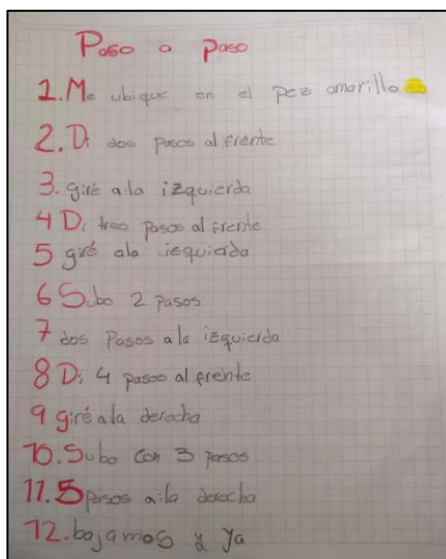 Paso a paso
1. Me ubique en el pez amarillo
2. Di dos pasos al frente
3. giré a la izquierda
4 Di tres pasos al frente
5 giré ala iequierda
6 Subo 2 pasos
7 dos Pasos a la izquierda
8 Di 4 pasos al frente
9 giré a la derecha
10. Subo con 3 pasos
11. 5 pasos a la derecha
12. bajamos y ya